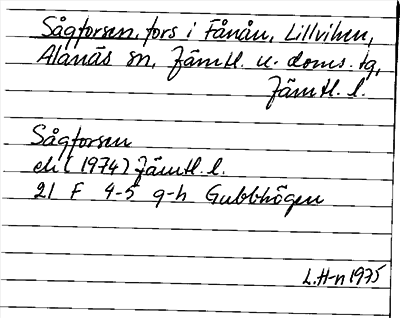 Sågforsen, fors i Fånån, Lillviken,
Alanäs sn, Jämtl. v. doms. tg,
Jämtl. l.
Sågforsen
ek (1974) Jämtl. l.
21 F 4-5 g-h Gubbhögen
L.H-n 1975